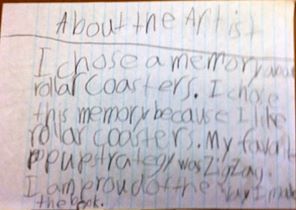 About the Artist
I chose a memory about
rollar coasters. I chose
this memory because I like
rollar coasters. My favorit
popup strategy was Zig Zag.
I am proud of the way I made
the book.